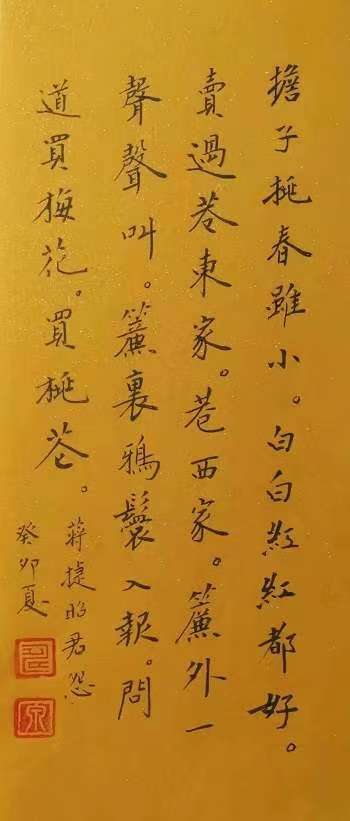 擔子挑春雖小。白白紅紅都好。
賣過巷東家。巷西家。簾外一
聲聲叫。簾裏鴉鬟入報。問
道買梅花。買桃花。
蔣捷昭君怨
癸卯夏